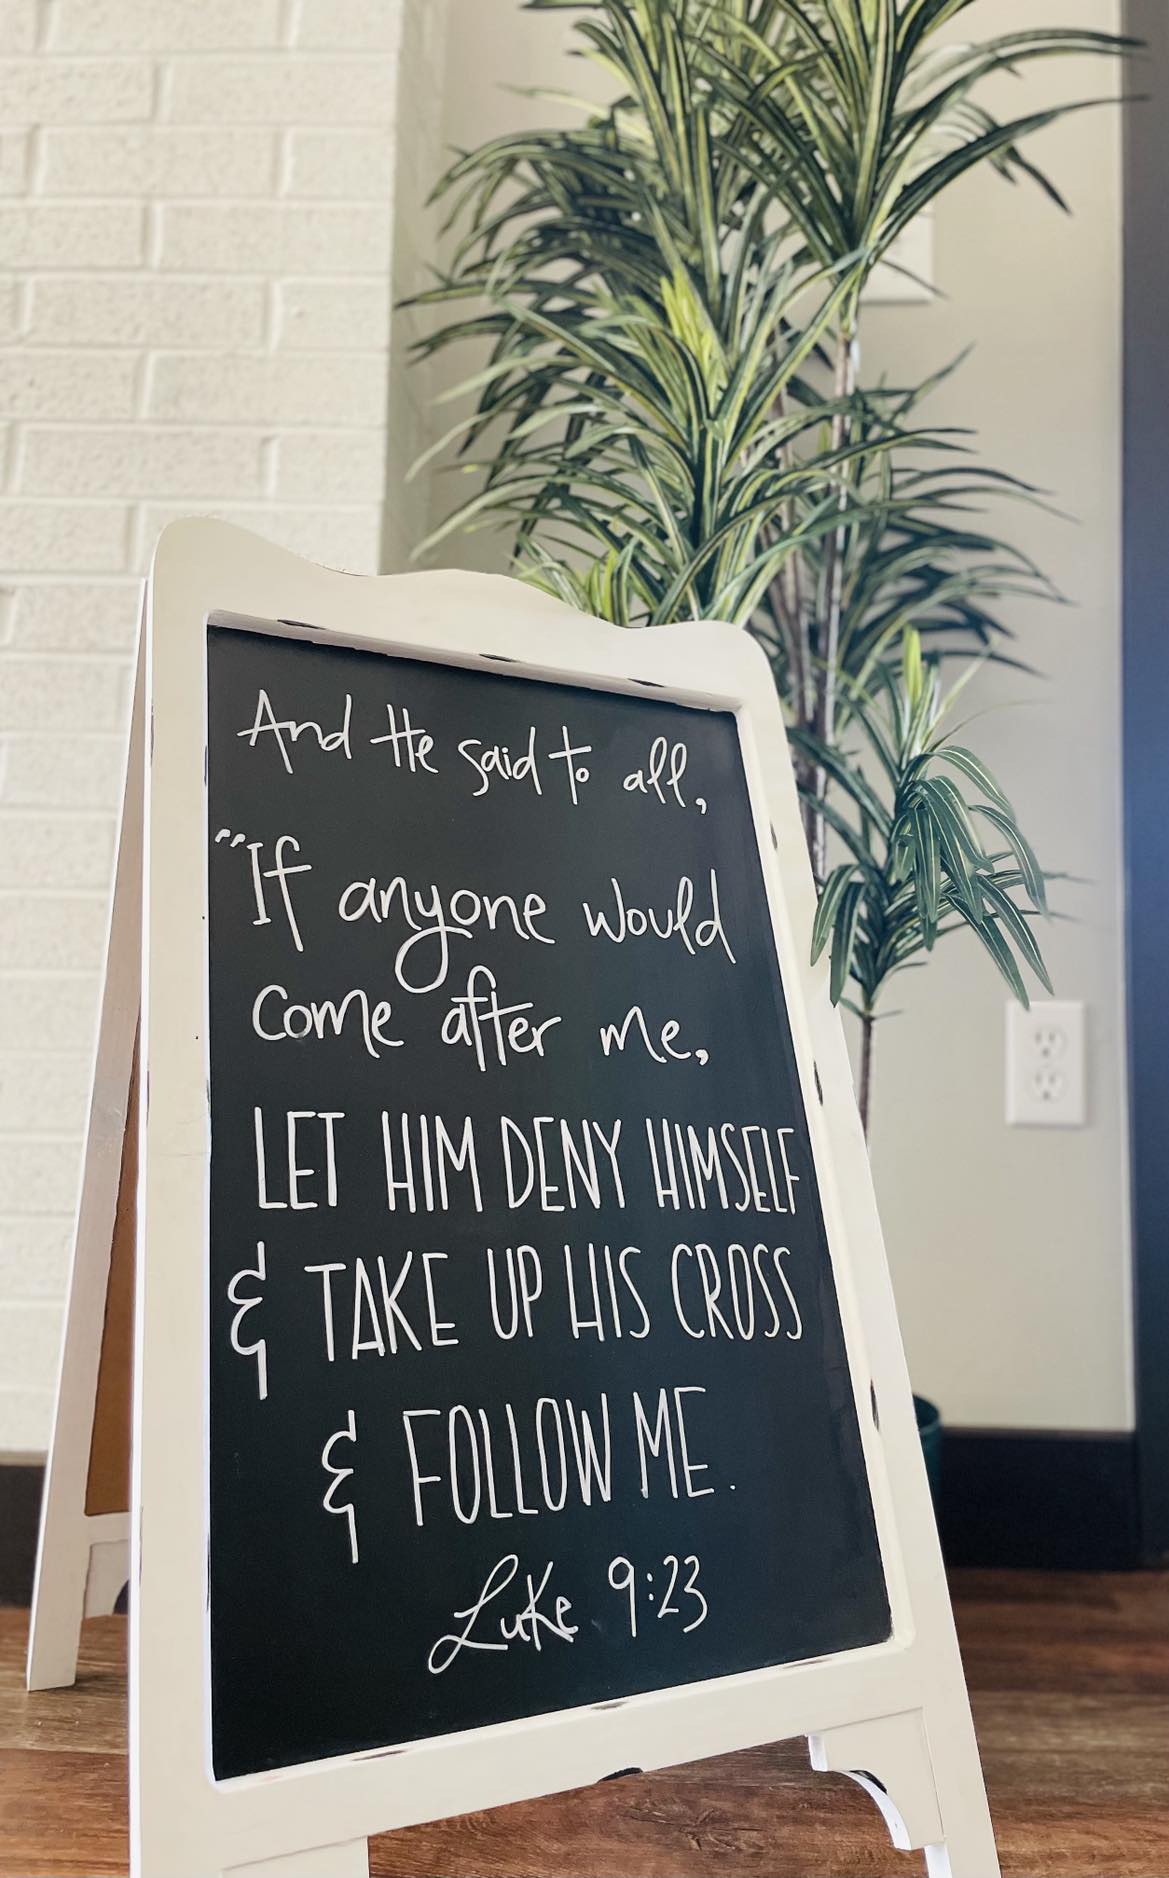 And He said to all,
"If anyone would
come after me,
LET HIM DENY HIMSELF
& TAKE UP HIS CROSS
& FOLLOW ME.
Luke 9:23